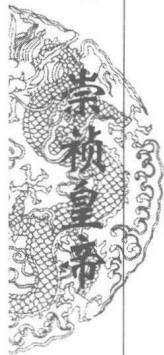 崇祯皇帝